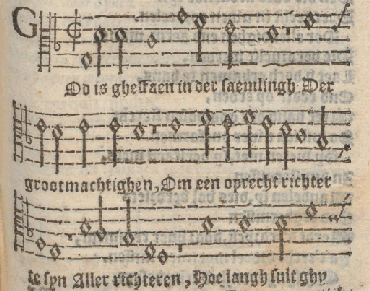 God is ghestaen in der saemlingh Der
grootmachtighen, Om een oprecht richter
te syn Aller richteren, Hoe langh sult ghy